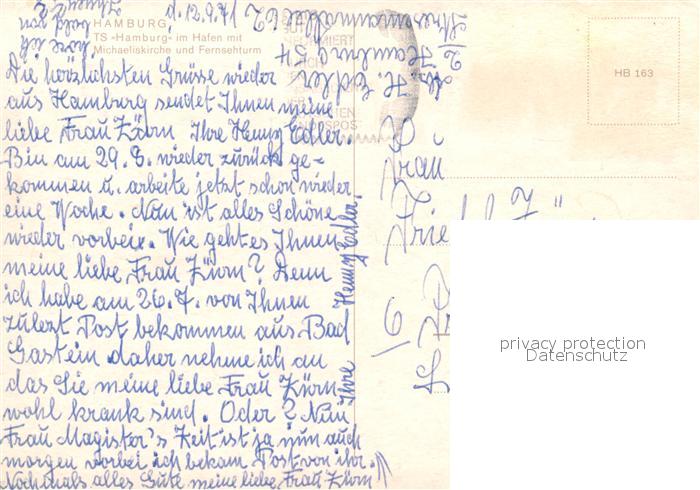 HAMBURG
TS »Hamburg« im Hafen mit
Michaeliskirche und Fernsehturm
d. 12.9.71
Die herzlichsten Grüsse wieder
aus Hamburg sendet Ihnen meine
liebe Frau Zürn Ihre Henny Edler.
Bin am 29.8. wieder zurück ge-
kommen u. arbeite jetzt schon wieder
eine Woche. Nun ist alles Schöne
wieder vorbei. Wie geht es Ihnen
meine liebe Frau Zürn? Denn
ich habe am 26.7. von Ihnen
zulezt Post bekommen aus Bad
Gastein daher nehme ich an
das Sie meine liebe Frau Zürn
wohl krank sind. Oder? Nun
Frau Magister's Zeit ist ja nun auch
morgen vorbei ich bekam Post von ihr.
Nochmals alles Gute meine liebe Frau Zürn
Ihre Henny Edler.
höre ich
bald von
Ihnen?
H. Edler
2 Hamburg 54
HB 163
Frau
privacy protection
Datenschutz